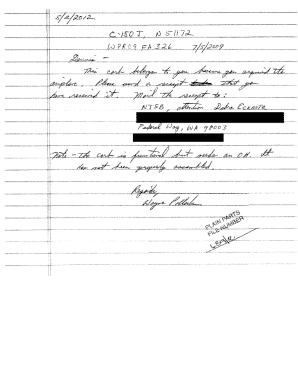 5/2/2012
C-150J, N51172
WPR09FA326 7/5/2009
Dennis -
This carb belongs to you because you acquired the
airplane. Please send a receipt that you
have received it. Mail the receipt to:
NTSB, attention Debra Eckrote
Federal Way, WA 98003
Note - The carb is functional but needs an OH. It
has not been properly assembled.
Regards,
Wayne
PLAIN PARTS
FILE NUMBER